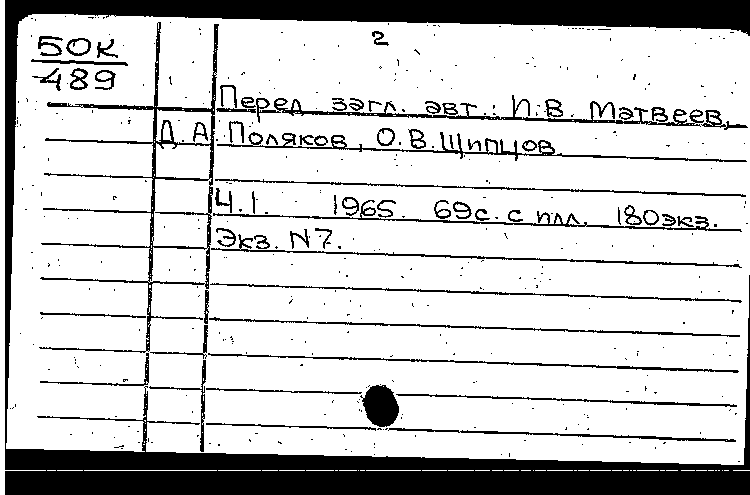 2
50К
489
Перед загл. авт.: П.В. Матвеев,
Д.А. Поляков, О.В. Щипцов
Ч.1. 1965. 69с. с илл. 180экз.
Экз. N7.